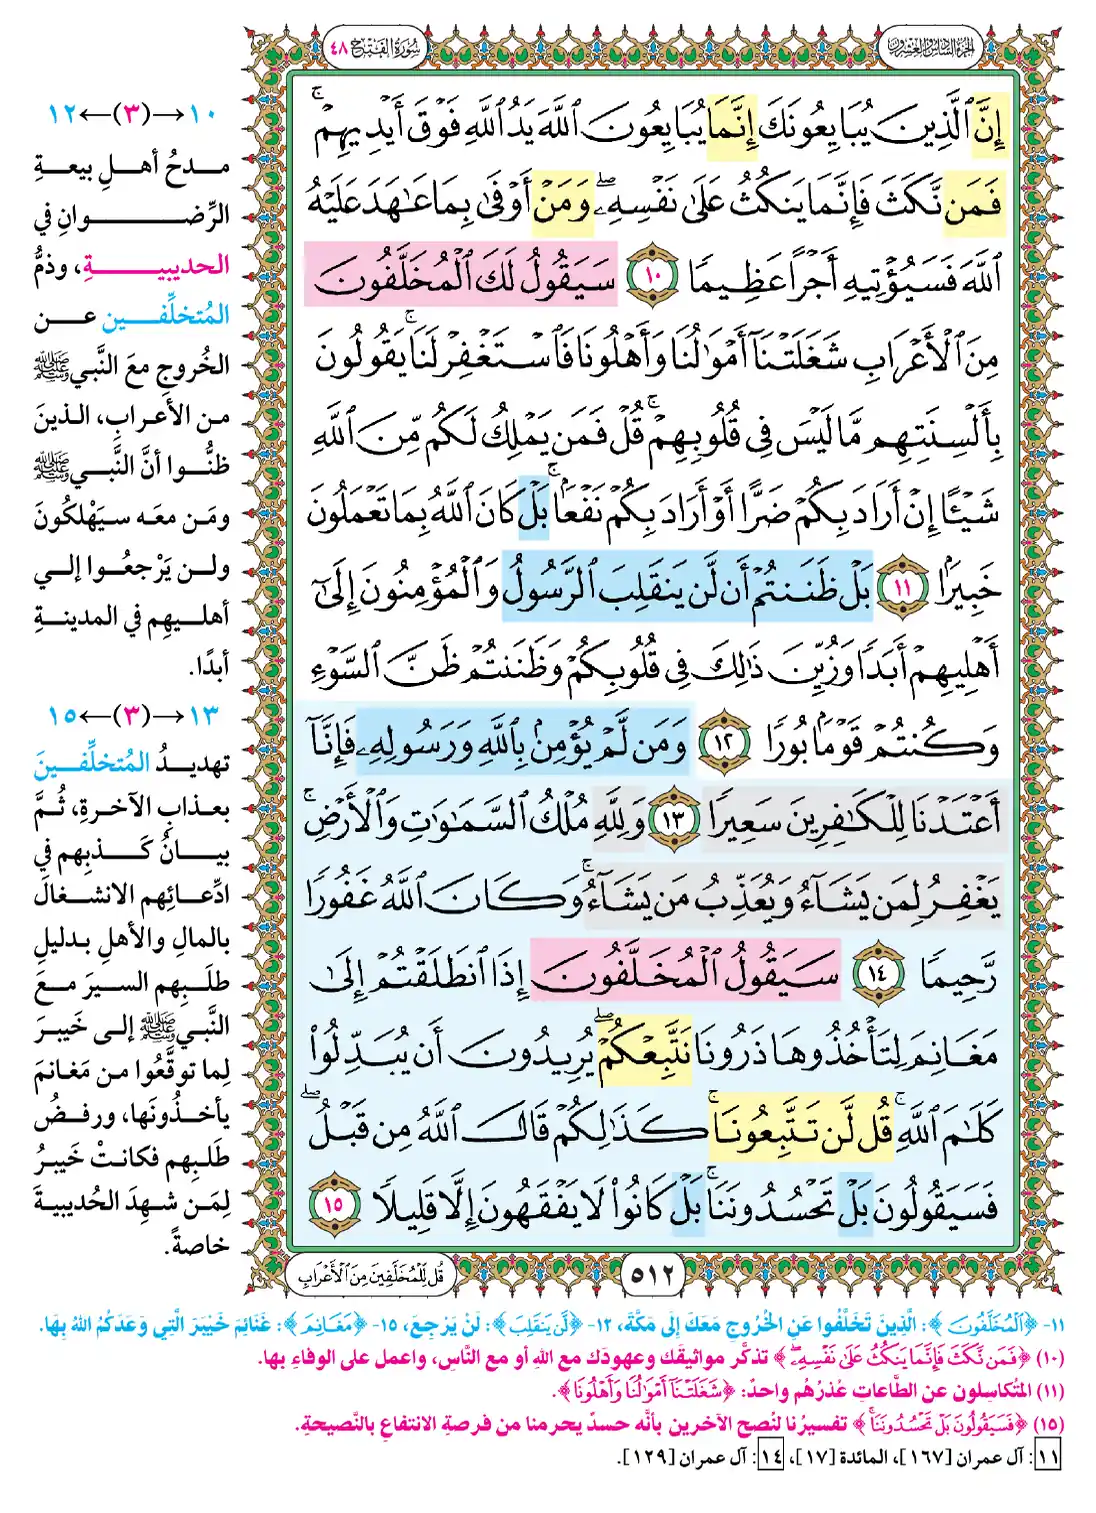 الجزء السادس والعشرون
سورة الفتح ٤٨
إِنَّ ٱلَّذِينَ يُبَايِعُونَكَ إِنَّمَا يُبَايِعُونَ ٱللَّهَ يَدُ ٱللَّهِ فَوْقَ أَيْدِيهِمْۚ
فَمَن نَّكَثَ فَإِنَّمَا يَنكُثُ عَلَىٰ نَفْسِهِۦۖ وَمَنْ أَوْفَىٰ بِمَا عَٰهَدَ عَلَيْهُ
ٱللَّهَ فَسَيُؤْتِيهِ أَجْرًا عَظِيمًا ١٠ سَيَقُولُ لَكَ ٱلْمُخَلَّفُونَ
مِنَ ٱلْأَعْرَابِ شَغَلَتْنَآ أَمْوَٰلُنَا وَأَهْلُونَا فَٱسْتَغْفِرْ لَنَاۚ يَقُولُونَ
بِأَلْسِنَتِهِم مَّا لَيْسَ فِى قُلُوبِهِمْۚ قُلْ فَمَن يَمْلِكُ لَكُم مِّنَ ٱللَّهِ
شَيْـًٔا إِنْ أَرَادَ بِكُمْ ضَرًّا أَوْ أَرَادَ بِكُمْ نَفْعَۢاۚ بَلْ كَانَ ٱللَّهُ بِمَا تَعْمَلُونَ
خَبِيرًۢا ١١ بَلْ ظَنَنتُمْ أَن لَّن يَنقَلِبَ ٱلرَّسُولُ وَٱلْمُؤْمِنُونَ إِلَىٰٓ
أَهْلِيهِمْ أَبَدًا وَزُيِّنَ ذَٰلِكَ فِى قُلُوبِكُمْ وَظَنَنتُمْ ظَنَّ ٱلسَّوْءِ
وَكُنتُمْ قَوْمَۢا بُورًا ١٢ وَمَن لَّمْ يُؤْمِنۢ بِٱللَّهِ وَرَسُولِهِۦ فَإِنَّآ
أَعْتَدْنَا لِلْكَٰفِرِينَ سَعِيرًا ١٣ وَلِلَّهِ مُلْكُ ٱلسَّمَٰوَٰتِ وَٱلْأَرْضِۚ
يَغْفِرُ لِمَن يَشَآءُ وَيُعَذِّبُ مَن يَشَآءُۚ وَكَانَ ٱللَّهُ غَفُورًا
رَّحِيمًا ١٤ سَيَقُولُ ٱلْمُخَلَّفُونَ إِذَا ٱنطَلَقْتُمْ إِلَىٰ
مَغَانِمَ لِتَأْخُذُوهَا ذَرُونَا نَتَّبِعْكُمْۖ يُرِيدُونَ أَن يُبَدِّلُوا۟
كَلَٰمَ ٱللَّهِۚ قُل لَّن تَتَّبِعُونَاۚ كَذَٰلِكُمْ قَالَ ٱللَّهُ مِن قَبْلُۖ
فَسَيَقُولُونَ بَلْ تَحْسُدُونَنَاۚ بَلْ كَانُوا۟ لَا يَفْقَهُونَ إِلَّا قَلِيلًا ١٥
٥١٢
قُل لِّلْمُخَلَّفِينَ مِنَ ٱلْأَعْرَابِ
١٠→(٣)←١٢
مدحُ أهلِ بيعةِ
الرِّضوانِ في
الحديبيةِ، وذمُّ
المُتخلِّفين عن
الخُروجِ معَ النَّبي ﷺ
من الأعرابِ، الذينَ
ظنُّوا أنَّ النَّبي ﷺ
ومَن معَه سيَهْلكُونَ
ولن يَرْجعُوا إلي
أهليهِم في المدينةِ
أبدًا.
١٣→(٣)←١٥
تهديدُ المُتخلِّفينَ
بعذابِ الآخرةِ، ثُمَّ
بيانُ كَذبِهم في
ادِّعائِهم الانشغالَ
بالمالِ والأهلِ بدليلِ
طلَبِهم السيرَ معَ
النَّبي ﷺ إلى خَيبرَ
لِما توقَّعُوا من مَغانمَ
يأخذُونَها، ورفضُ
طلَبِهم فكانتْ خَيبرُ
لِمَن شهِدَ الحُديبيةَ
خاصةً.
١١- ﴿ٱلْمُخَلَّفُونَ﴾: الَّذِينَ تَخَلَّفُوا عَنِ الخُرُوجِ مَعَكَ إِلَى مَكَّةَ، ١٢- ﴿لَّن يَنقَلِبَ﴾: لَنْ يَرْجِعَ، ١٥- ﴿مَغَانِمَ﴾: غَنَائِمَ خَيْبَرَ الَّتِي وَعَدَكُمُ اللهُ بِهَا.
(١٠) ﴿فَمَن نَّكَثَ فَإِنَّمَا يَنكُثُ عَلَىٰ نَفْسِهِۦۖ﴾ تذكَّر مواثيقَك وعهودَك مع اللهِ أو مع النَّاسِ، واعمل على الوفاءِ بها.
(١١) المُتكاسِلون عن الطَّاعاتِ عُذرُهُم واحدٌ: ﴿شَغَلَتْنَآ أَمْوَٰلُنَا وَأَهْلُونَا﴾.
(١٥) ﴿فَسَيَقُولُونَ بَلْ تَحْسُدُونَنَاۚ﴾ تفسيرُنا لنُصح الآخرين بأنَّه حسدٌ يحرمنا من فرصةِ الانتفاعِ بالنَّصيحةِ.
١١: آل عمران [١٦٧]، المائدة [١٧]، ١٤: آل عمران [١٢٩].